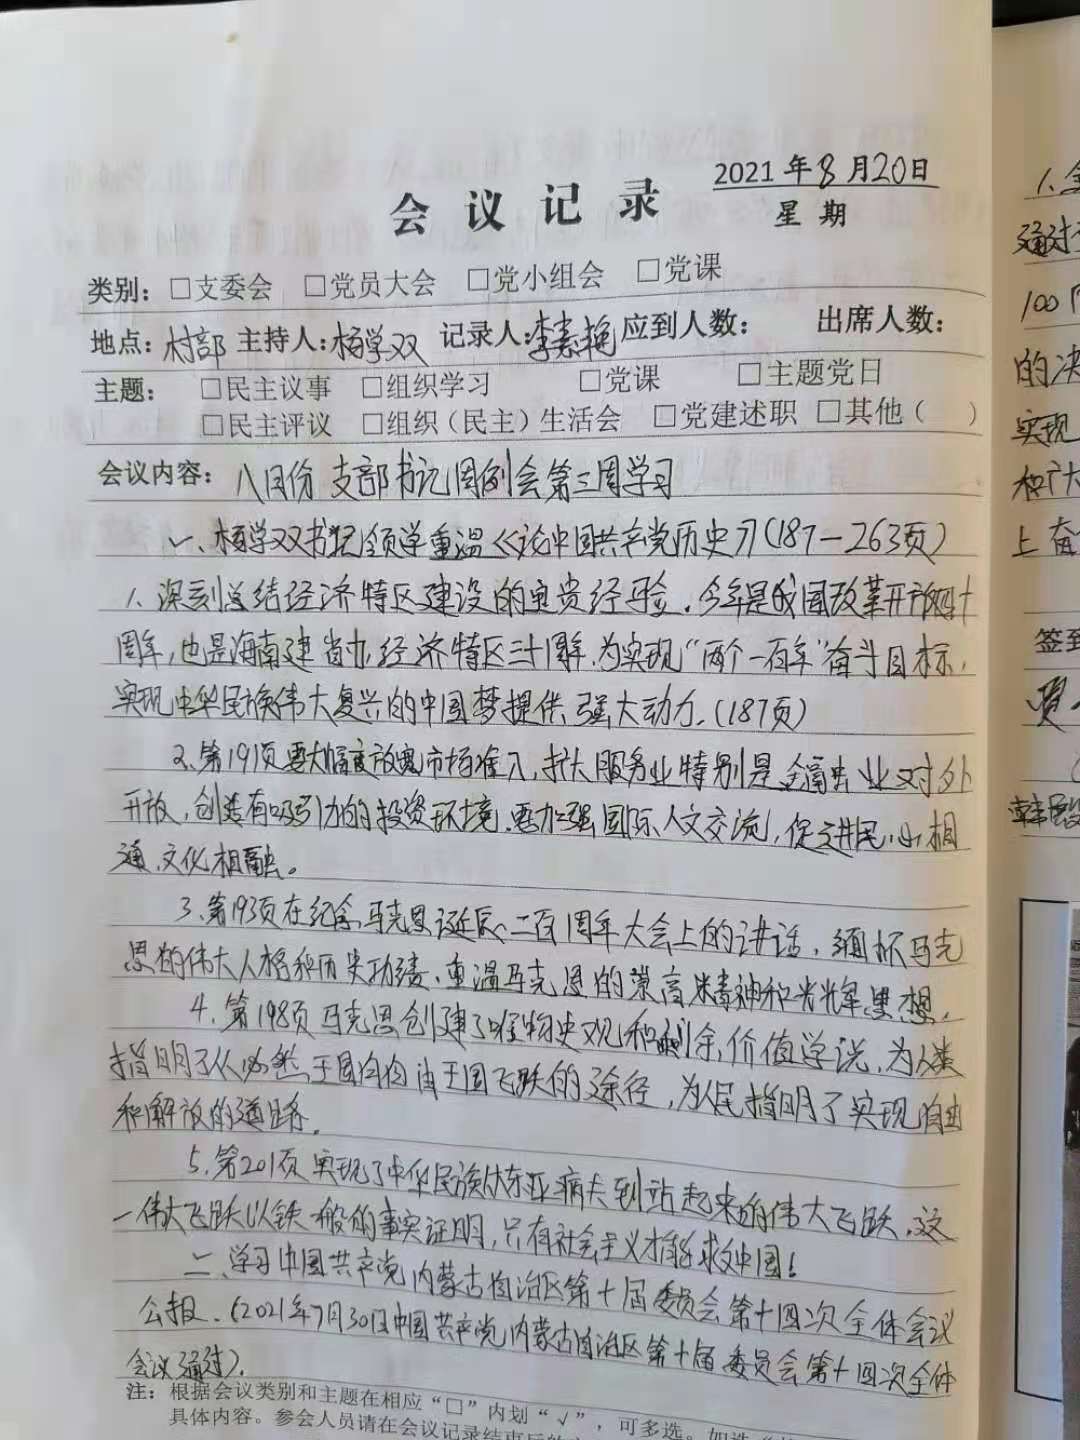 2021年8月20日
会议记录
星期
类别：□支委会 □党员大会 □党小组会 □党课
地点：村部 主持人：杨学双 记录人：李素艳 应到人数： 出席人数：
主题： □民主议事 □组织学习 □党课 □主题党日
□民主评议 □组织（民主）生活会 □党建述职 □其他（ ）
会议内容：八月份支部书记周例会第三周学习
一、杨学双书记领学重温《论中国共产党历史》(187—263页)
1、深刻总结经济特区建设的宝贵经验，今年是我国改革开放四十
周年，也是海南建省办经济特区三十周年，为实现“两个一百年”奋斗目标，
实现中华民族伟大复兴的中国梦提供强大动力。(187页)
2、第191页要大幅度放宽市场准入，扩大服务业特别是金融业对外
开放，创造有吸引力的投资环境。要加强国际人文交流，促进民心相
通、文化相融。
3、第193页在纪念马克思诞辰二百周年大会上的讲话，缅怀马克
思的伟大人格和历史功绩，重温马克思的崇高精神和光辉思想，
4、第198页马克思创建了唯物史观和剩余价值学说，为人类
指明了从必然王国向自由王国飞跃的途径，为人民指明了实现自由
和解放的道路。
5、第201页实现了中华民族从东亚病夫到站起来的伟大飞跃。这
一伟大飞跃以铁一般的事实证明，只有社会主义才能救中国！
二、学习中国共产党内蒙古自治区第十届委员会第十四次全体会议
公报。(2021年7月30日中国共产党内蒙古自治区第十届委员会第十四次全体
会议通过)。
注：根据会议类别和主题在相应“□”内划“√”，可多选。如选
具体内容。参会人员请在会议记录结束后的
1、
通过
100
的决
实现
和广大
上奋
签到